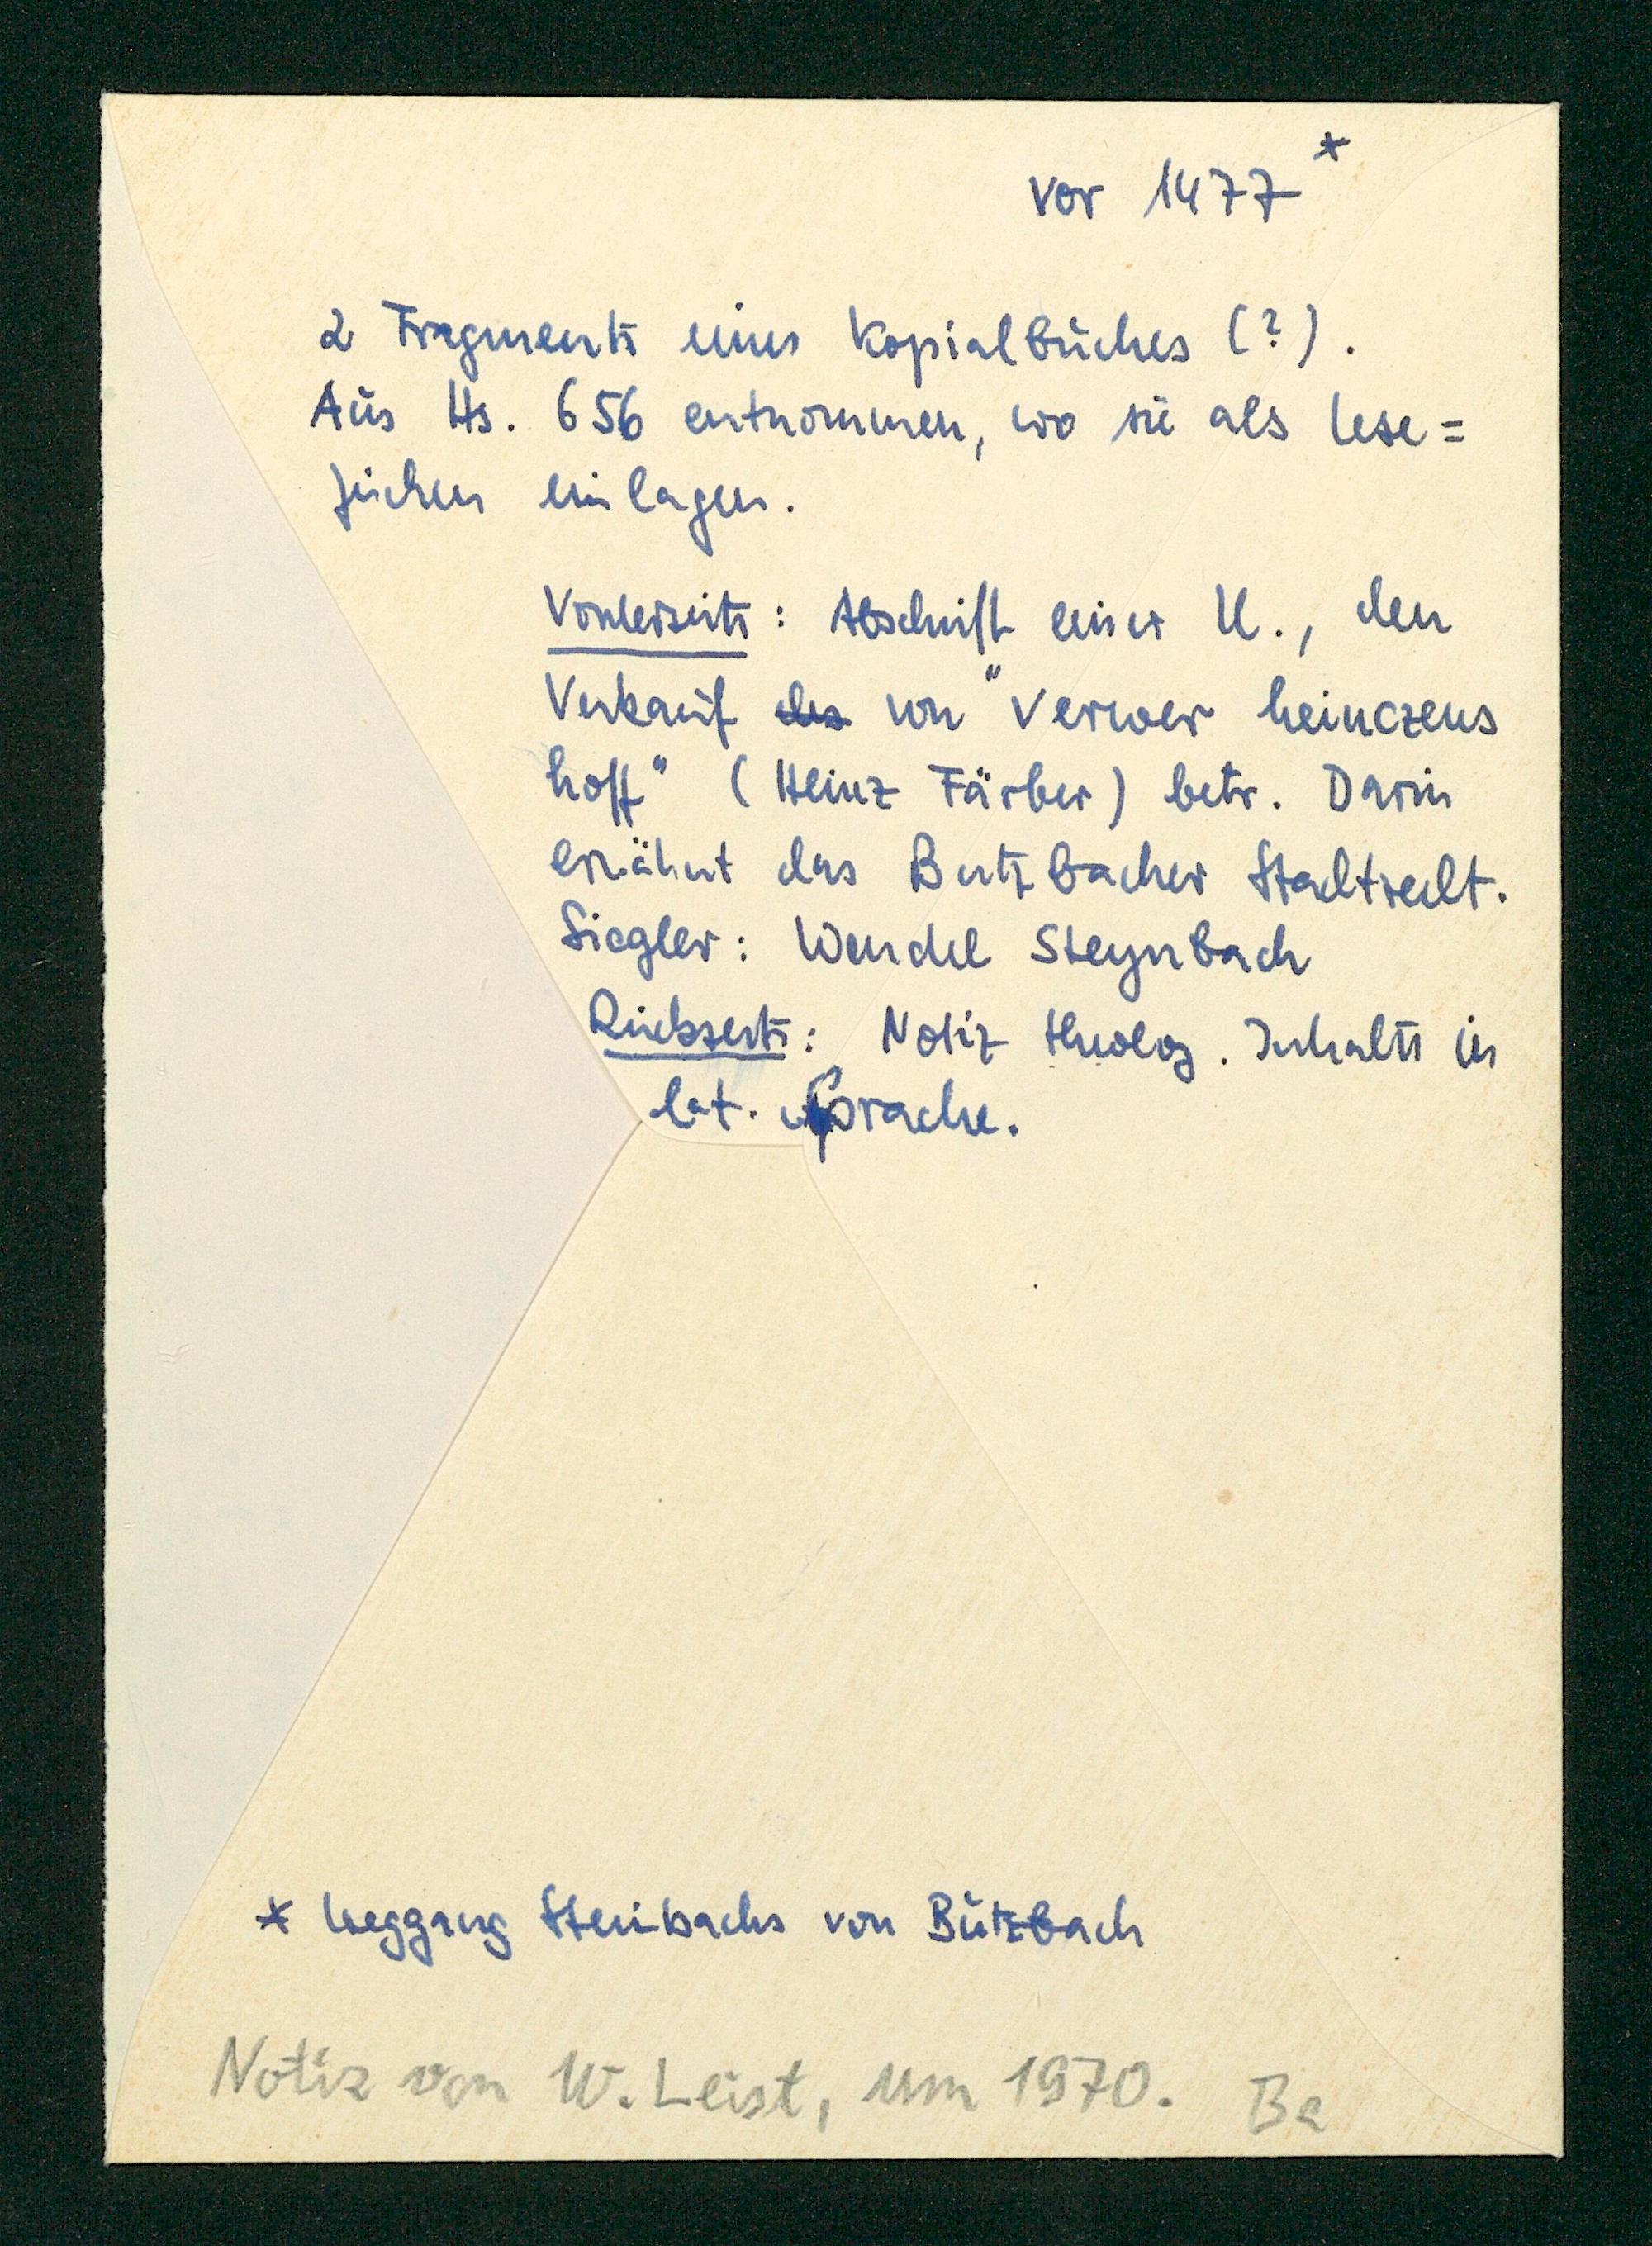 vor 1477*
2 Fragmente eines Kopialbuches (?).
Aus Hs. 656 entnommen, wo sie als Lese=
zeichen einlagen.
Vorderseite: Abschrift einer U., den
Verkauf des von "Verwer heinczens
hoff" (Heinz Färber) betr. Darin
erwähnt das Butzbacher Stadtrecht.
Siegler: Wendel Steynbach
Rückseite: Notiz theolog. Inhalts in
lat. Sprache.
* Weggang Steinbachs von Butzbach
Notiz von W. Leist, um 1970. Ba